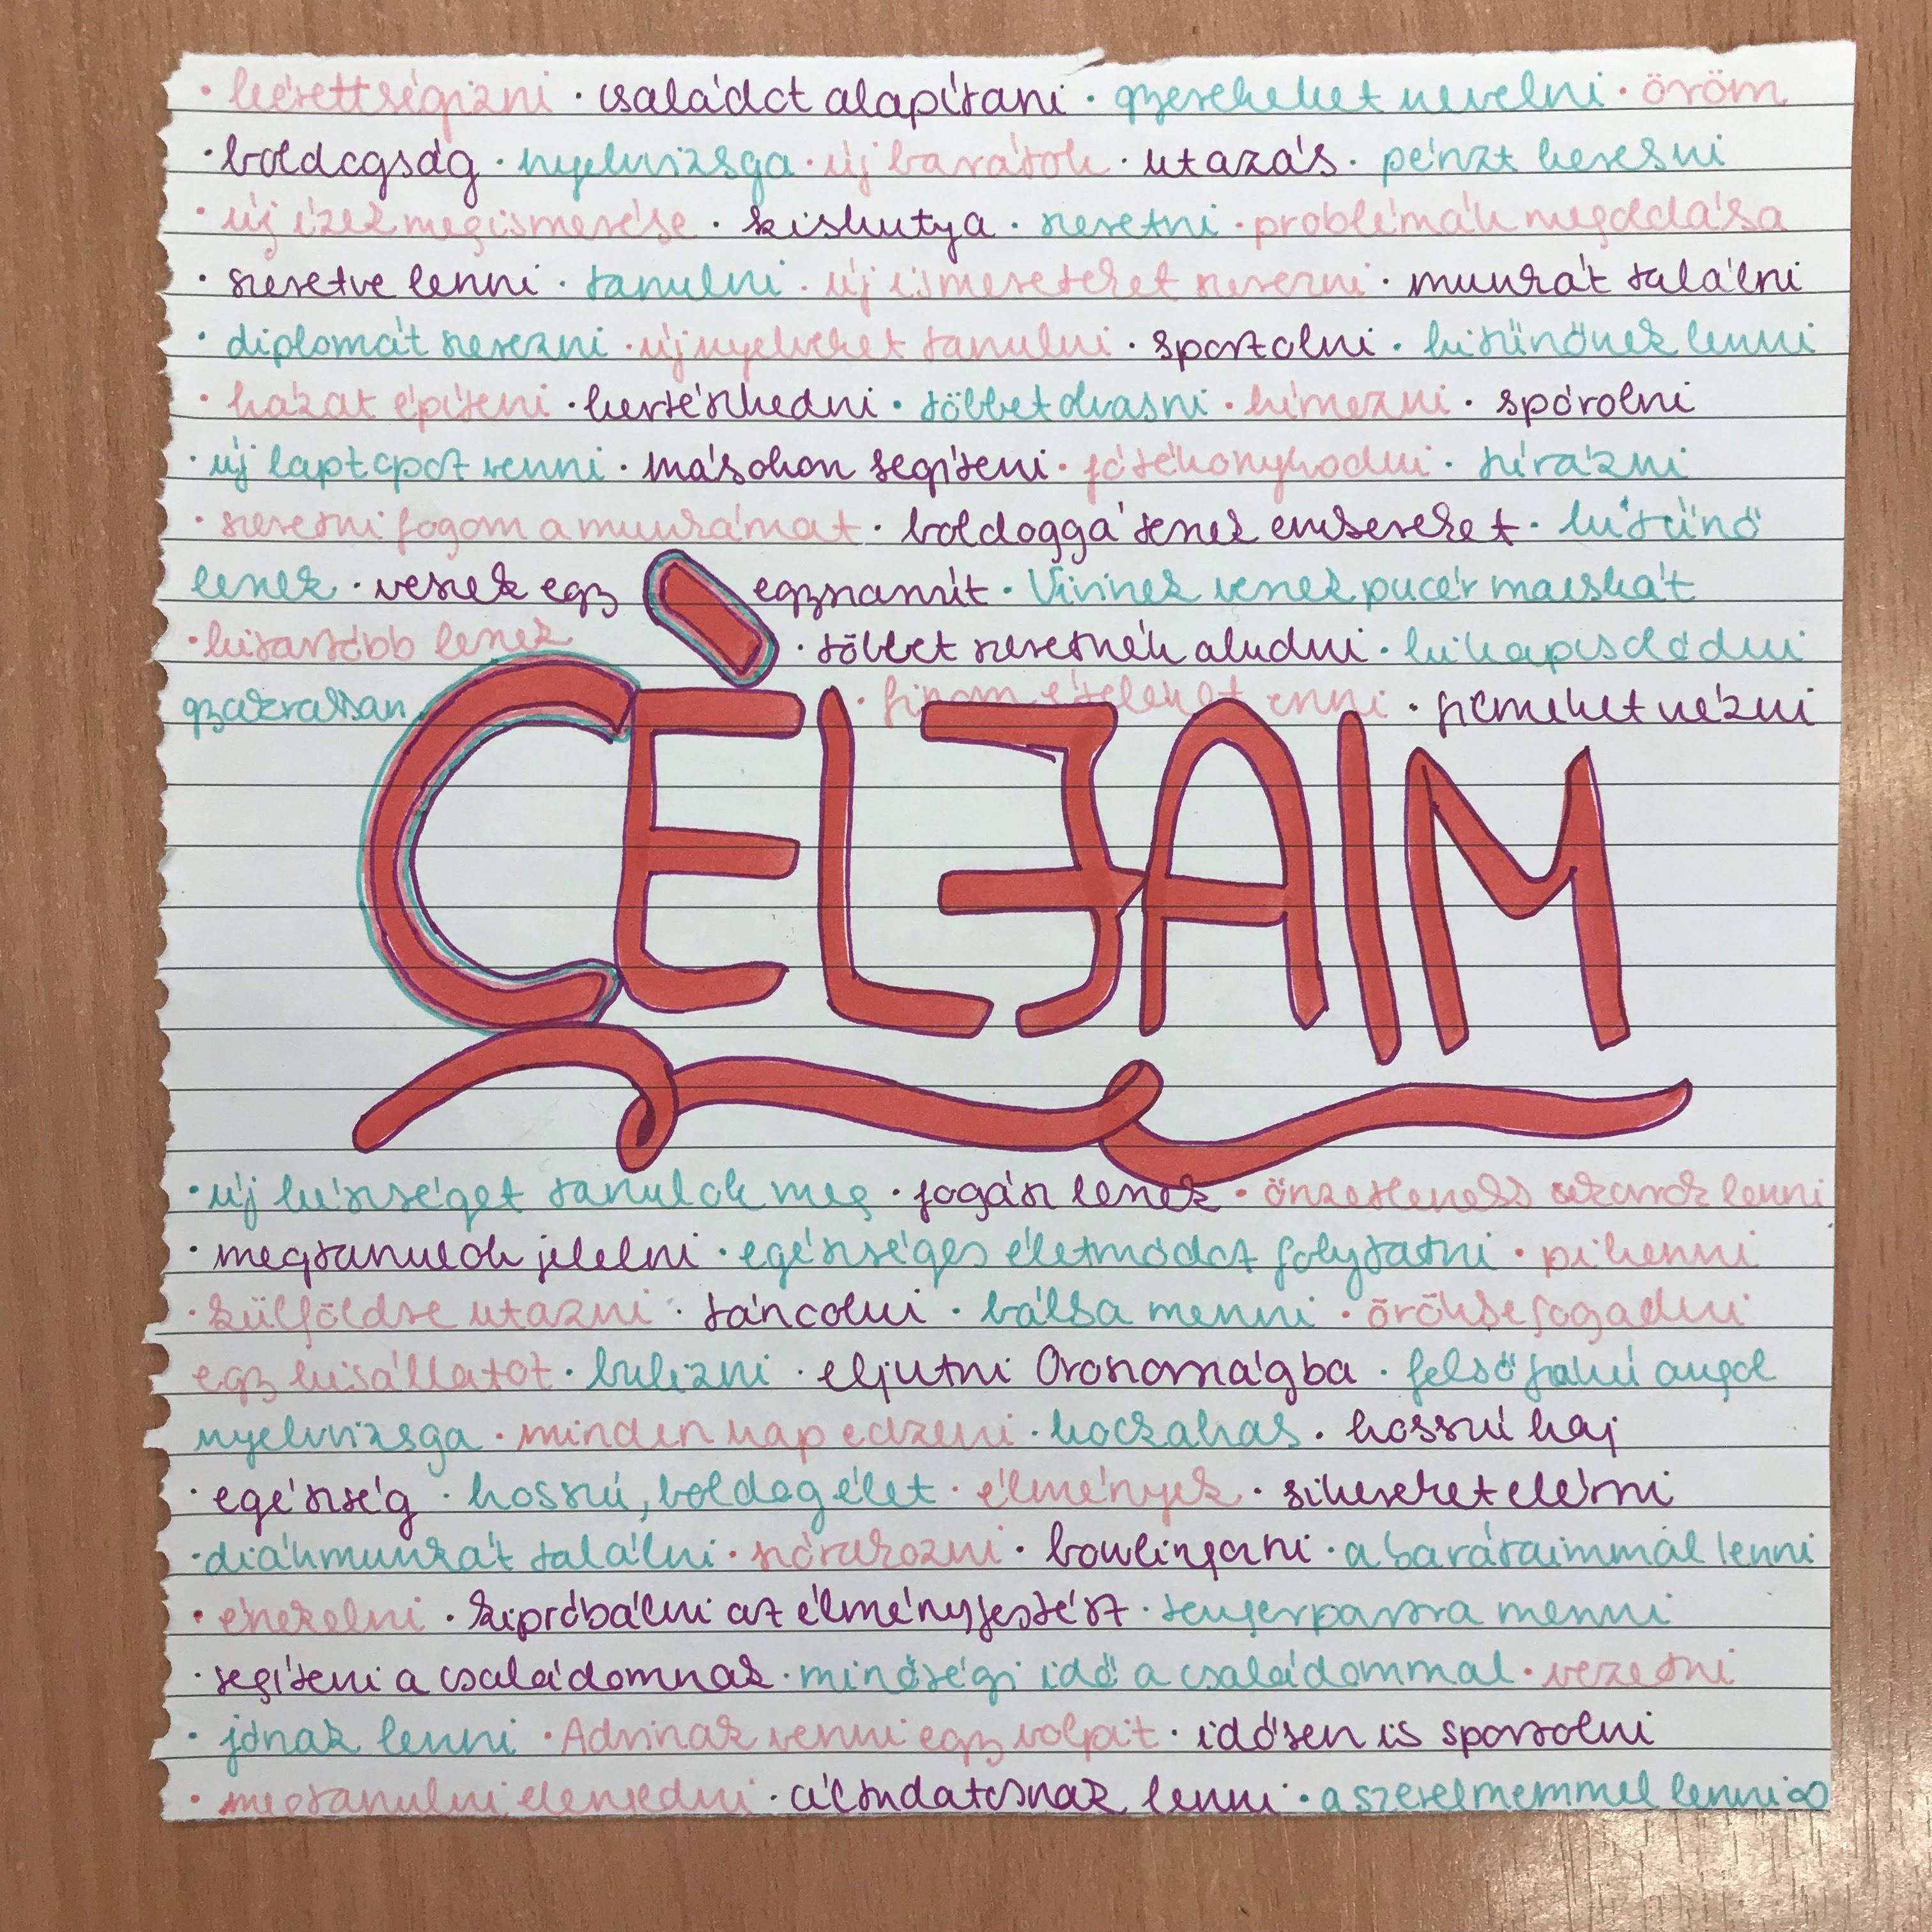 · érettségizni · családot alapítani · gyerekeket nevelni · öröm
· boldogság · nyelvvizsga · új barátok · utazás · pénzt keresni
· új ízek megismerése · kiskutya · szeretni · problémák megoldása
· szeretve lenni · tanulni · új ismereteket szerezni · munkát találni
· diplomát szerezni · új nyelveket tanulni · sportolni · kitűnőnek lenni
· házat építeni · kertészkedni · többet olvasni · hímezni · spórolni
· új laptopot venni · másokon segíteni · jótékonykodni · túrázni
· szeretni fogom a munkámat · boldoggá teszek embereket · kitűnő
leszek · veszek egy egyszarvút · Vivinek veszek pucér macskát
· kitartóbb leszek · többet szeretnék aludni · kikapcsolódni
gyakrabban · finom ételeket enni · filmeket nézni
CÉLJAIM
· új készséget tanulok meg · fogász leszek · önzetlenebb akarok lenni
· megtanulok jelelni · egészséges életmódot folytatni · pihenni
· külföldre utazni · táncolni · bálba menni · örökbefogadni
egy kisállatot · bulizni · eljutni Oroszországba · felsőfokú angol
nyelvvizsga · minden nap edzeni · kockahas · hosszú haj
· egészség · hosszú, boldog élet · élmények · sikereket elérni
· diákmunkát találni · szórakozni · bowlingozni · a barátaimmal lenni
· énekelni · kipróbálni az élményfestést · tengerpartra menni
· segíteni a családomnak · minőségi idő a családommal · vezetni
· jónak lenni · Adrinak venni egy volpit · idősen is sportolni
· megtanulni elengedni · áldozatosnak lenni · a szerelmemmel lenni ∞